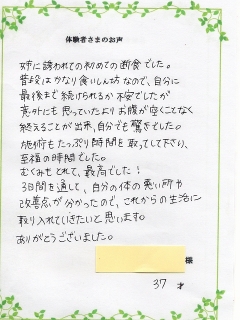 体験者さまのお声
姉に誘われての初めての断食でした。
普段はかなり食いしん坊なので、自分に
最後まで続けられるか不安でしたが
意外にも思っていたよりお腹が空くことなく
終えることが出来、自分でも驚きでした。
施術もたっぷり時間を取って下さり、
至福の時間でした。
むくみもとれて、最高でした！
3日間を通して、自分の体の悪い所や
改善点が分かったので、これからの生活に
取り入れていきたいと思います。
ありがとうございました。
様
37 才